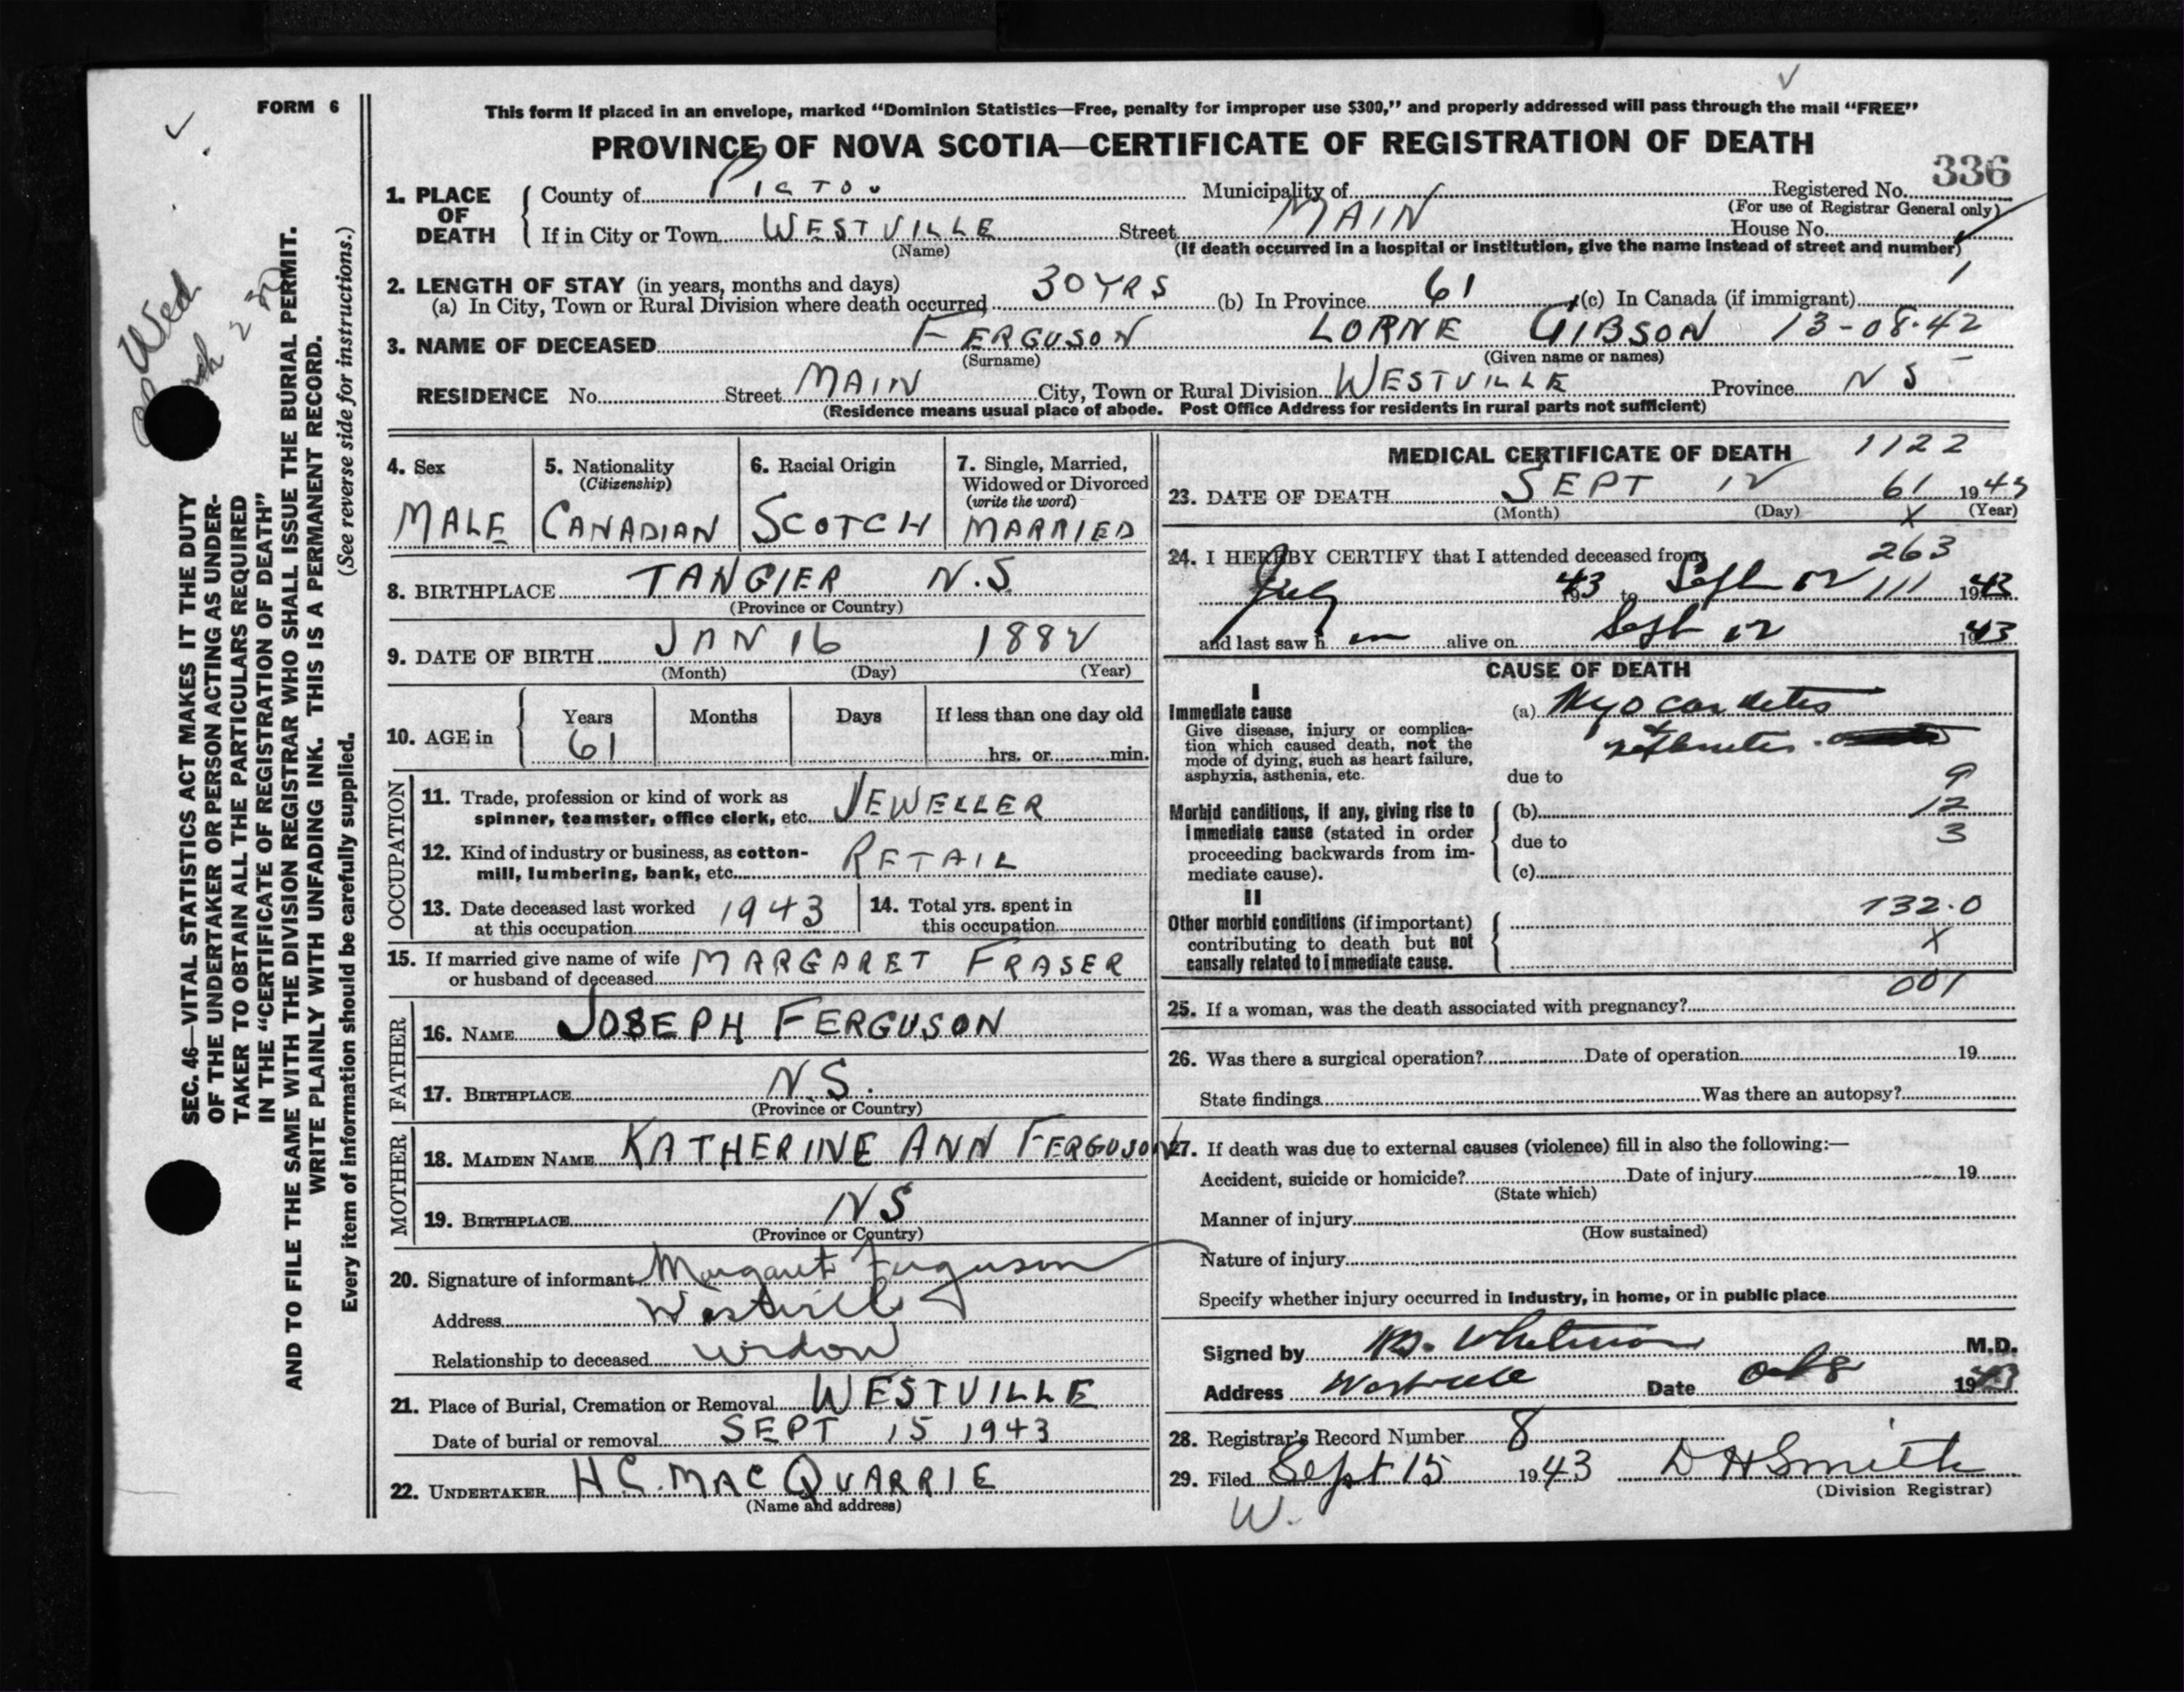 FORM 6
This form if placed in an envelope, marked "Dominion Statistics—Free, penalty for improper use $300," and properly addressed will pass through the mail "FREE"
PROVINCE OF NOVA SCOTIA—CERTIFICATE OF REGISTRATION OF DEATH
336
1. PLACE OF DEATH County of PICTOU Municipality of Registered No.
(For use of Registrar General only)
If in City or Town WESTVILLE Street MAIN House No.
(Name) (If death occurred in a hospital or institution, give the name instead of street and number)
2. LENGTH OF STAY (in years, months and days) 1
(a) In City, Town or Rural Division where death occurred 30 YRS (b) In Province 61 (c) In Canada (if immigrant)
3. NAME OF DECEASED FERGUSON LORNE GIBSON 13-08-42
(Surname) (Given name or names)
RESIDENCE No. Street MAIN City, Town or Rural Division WESTVILLE Province N S
(Residence means usual place of abode. Post Office Address for residents in rural parts not sufficient)
4. Sex MALE
5. Nationality (Citizenship) CANADIAN
6. Racial Origin SCOTCH
7. Single, Married, Widowed or Divorced (write the word) MARRIED
8. BIRTHPLACE TANGIER N.S.
(Province or Country)
9. DATE OF BIRTH JAN 16 1882
(Month) (Day) (Year)
10. AGE in Years Months Days If less than one day old
61 hrs. or min.
OCCUPATION
11. Trade, profession or kind of work as
spinner, teamster, office clerk, etc. JEWELLER
12. Kind of industry or business, as cotton-
mill, lumbering, bank, etc. RETAIL
13. Date deceased last worked
at this occupation 1943
14. Total yrs. spent in
this occupation
15. If married give name of wife
or husband of deceased MARGARET FRASER
FATHER
16. NAME JOSEPH FERGUSON
17. BIRTHPLACE N.S.
(Province or Country)
MOTHER
18. MAIDEN NAME KATHERINE ANN FERGUSON
19. BIRTHPLACE NS
(Province or Country)
20. Signature of informant Margaret Ferguson
Address Westville
Relationship to deceased widow
21. Place of Burial, Cremation or Removal WESTVILLE
Date of burial or removal SEPT 15 1943
22. UNDERTAKER H C. MAC QUARRIE
(Name and address)
MEDICAL CERTIFICATE OF DEATH 1122
23. DATE OF DEATH SEPT 12 61 1943
(Month) (Day) X (Year)
24. I HEREBY CERTIFY that I attended deceased from 263
July 1943 to Sept 12 111 1943
and last saw h im alive on Sept 12 1943
CAUSE OF DEATH
I
Immediate cause (a) Myocarditis
Give disease, injury or complica-
tion which caused death, not the
mode of dying, such as heart failure,
asphyxia, asthenia, etc.
+ nephritis
due to 9
Morbid conditions, if any, giving rise to
immediate cause (stated in order
proceeding backwards from im-
mediate cause).
(b) 12
due to 3
(c)
II
Other morbid conditions (if important)
contributing to death but not
causally related to immediate cause.
132.0
X
001
25. If a woman, was the death associated with pregnancy?
26. Was there a surgical operation? Date of operation 19
State findings Was there an autopsy?
27. If death was due to external causes (violence) fill in also the following:—
Accident, suicide or homicide? Date of injury 19
(State which)
Manner of injury
(How sustained)
Nature of injury
Specify whether injury occurred in industry, in home, or in public place
Signed by Whitman M.D.
Address Westville Date Oct 8 1943
28. Registrar's Record Number 8
29. Filed Sept 15 1943 D H Smith
(Division Registrar)
W.
SEC. 46—VITAL STATISTICS ACT MAKES IT THE DUTY
OF THE UNDERTAKER OR PERSON ACTING AS UNDER-
TAKER TO OBTAIN ALL THE PARTICULARS REQUIRED
IN THE "CERTIFICATE OF REGISTRATION OF DEATH"
AND TO FILE THE SAME WITH THE DIVISION REGISTRAR WHO SHALL ISSUE THE BURIAL PERMIT.
WRITE PLAINLY WITH UNFADING INK. THIS IS A PERMANENT RECORD.
Every item of information should be carefully supplied. (See reverse side for instructions.)